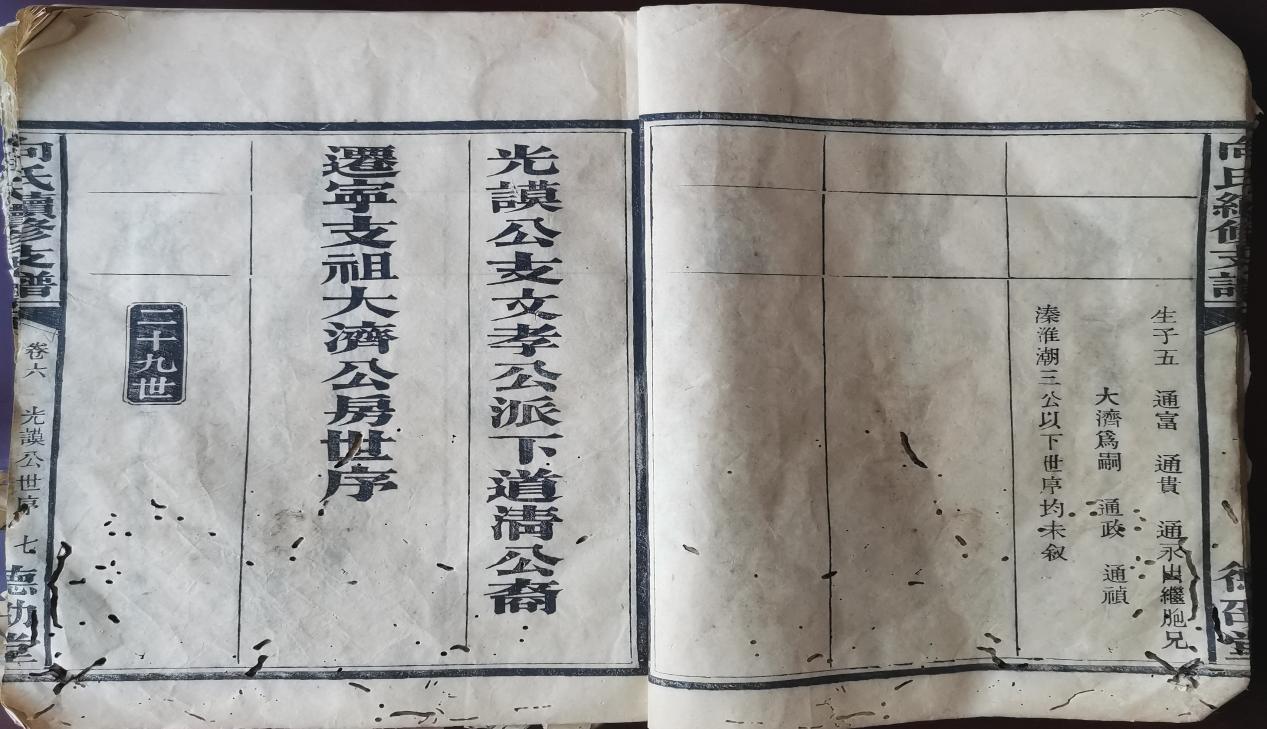 向氏續修支譜
生子五 通富 通貴 通永出繼胞兄
大濟爲嗣 通政 通禎
溱淮潮三公以下世序均未叙
光謨公支文孝公派下道淸公裔
遷寕支祖大濟公房世序
二十九世
向氏續修支譜
卷六 光謨公世序 七